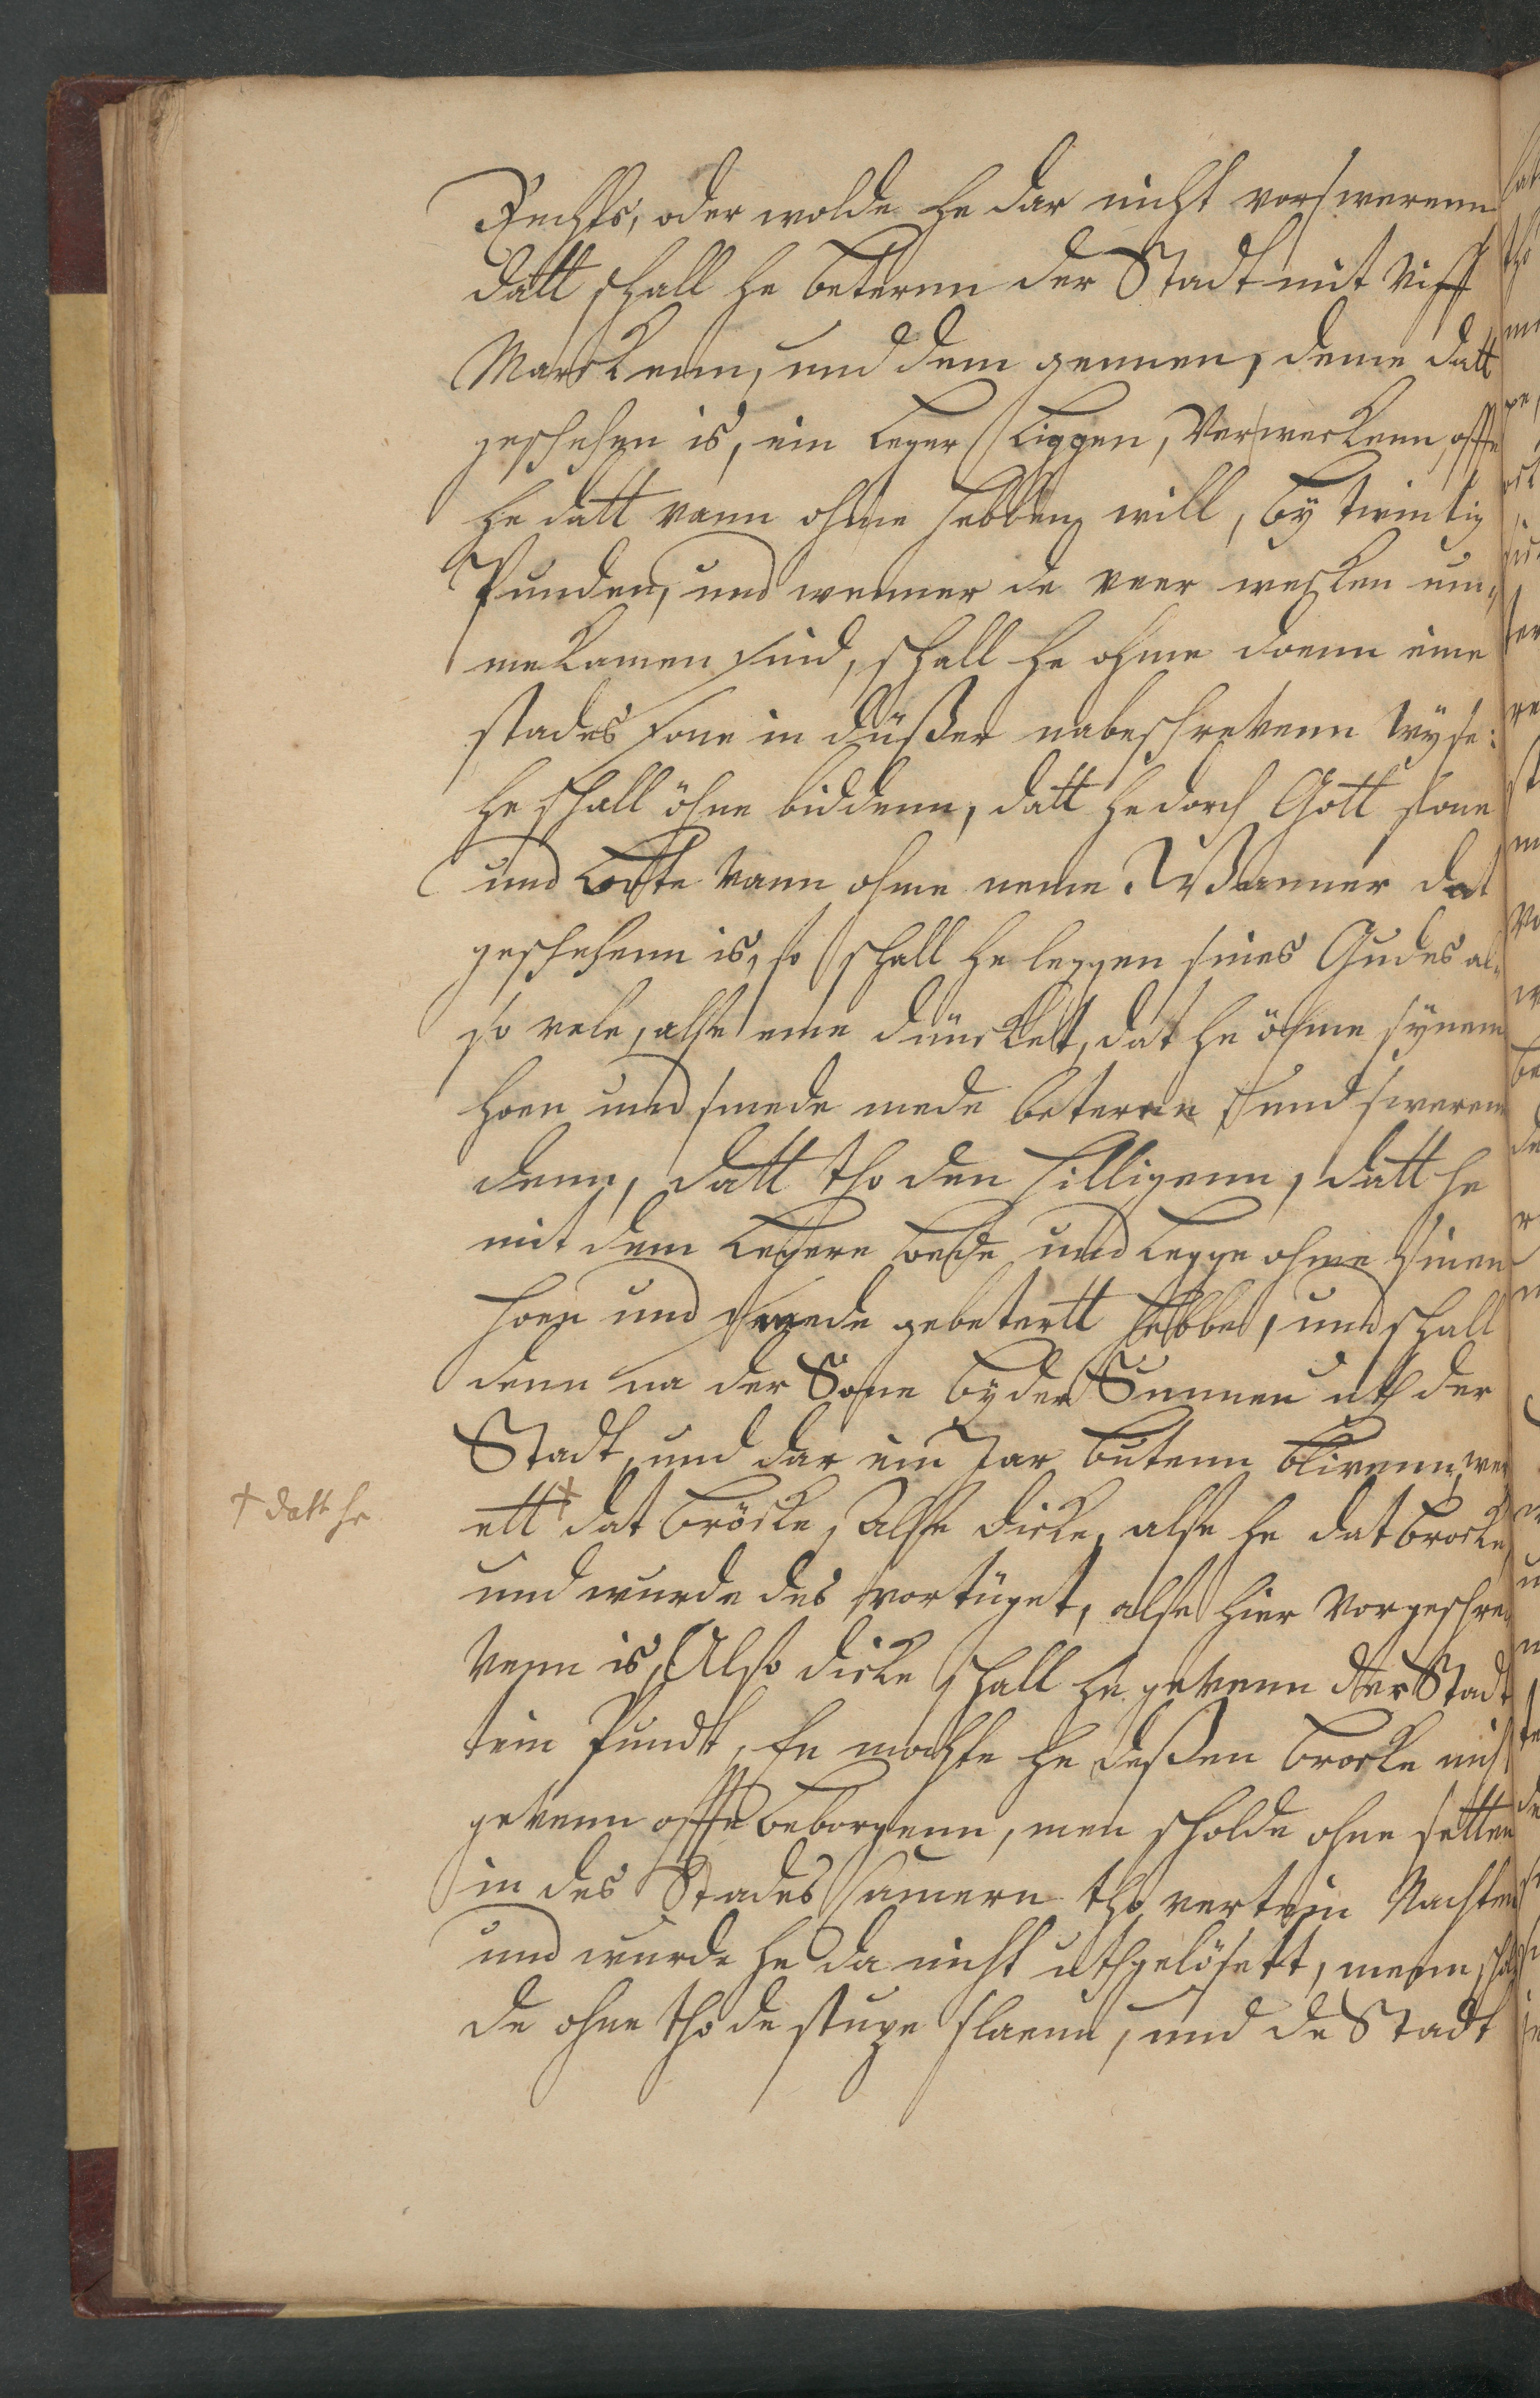 Rechts, oder wolde he dar nicht vorswerenn
datt schall he beterenn der Stadt mit Viff
Marckenn, und dem gennen, deme datt
geschehen is, ein Leger Liggen, Verwerckenn, offte
he datt vann ohme hebben will, by twintig
Punden, und wenner de veer wecken um,,
mekamen sind, schall he ohme doenn eine
stades sone in düßer nabeschrevenn Wyse:
he schall öhne biddenn, datt he dorch Gott sone
und Bothe vann ohme neme. Wanner dat
geschehenn is, so schall he leggen sines Gudes al,,
so vele, alse eme duncket, dat he öhme synen
hoen und smede mede beteren und sweren
denn, datt tho den hilligenn, datt he
mit dem Legere bede und Legge ohme sinen
hoen und smede gebetertt hebbe, und schall
denn na der Sone by der Sunnen uth der
Stadt, und dar ein Jar butenn blivenn, wer
ett † dat bröcke, Alse dicke, alse he dat brocke
† datt he
und wurde des vortüget, alse hier Vorgeschre,,
venn is, Also dicke schall he gevenn der Stadt
tein Pundt, En mochte he deßen brocke nich
gevenn offte beborgenn, men scholde ohne setten
in des Stades hamern tho vertein Nachten
und wurde he da nicht uthgelösett, menn schol
de ohne tho de stupe slaenn, und de Stadt